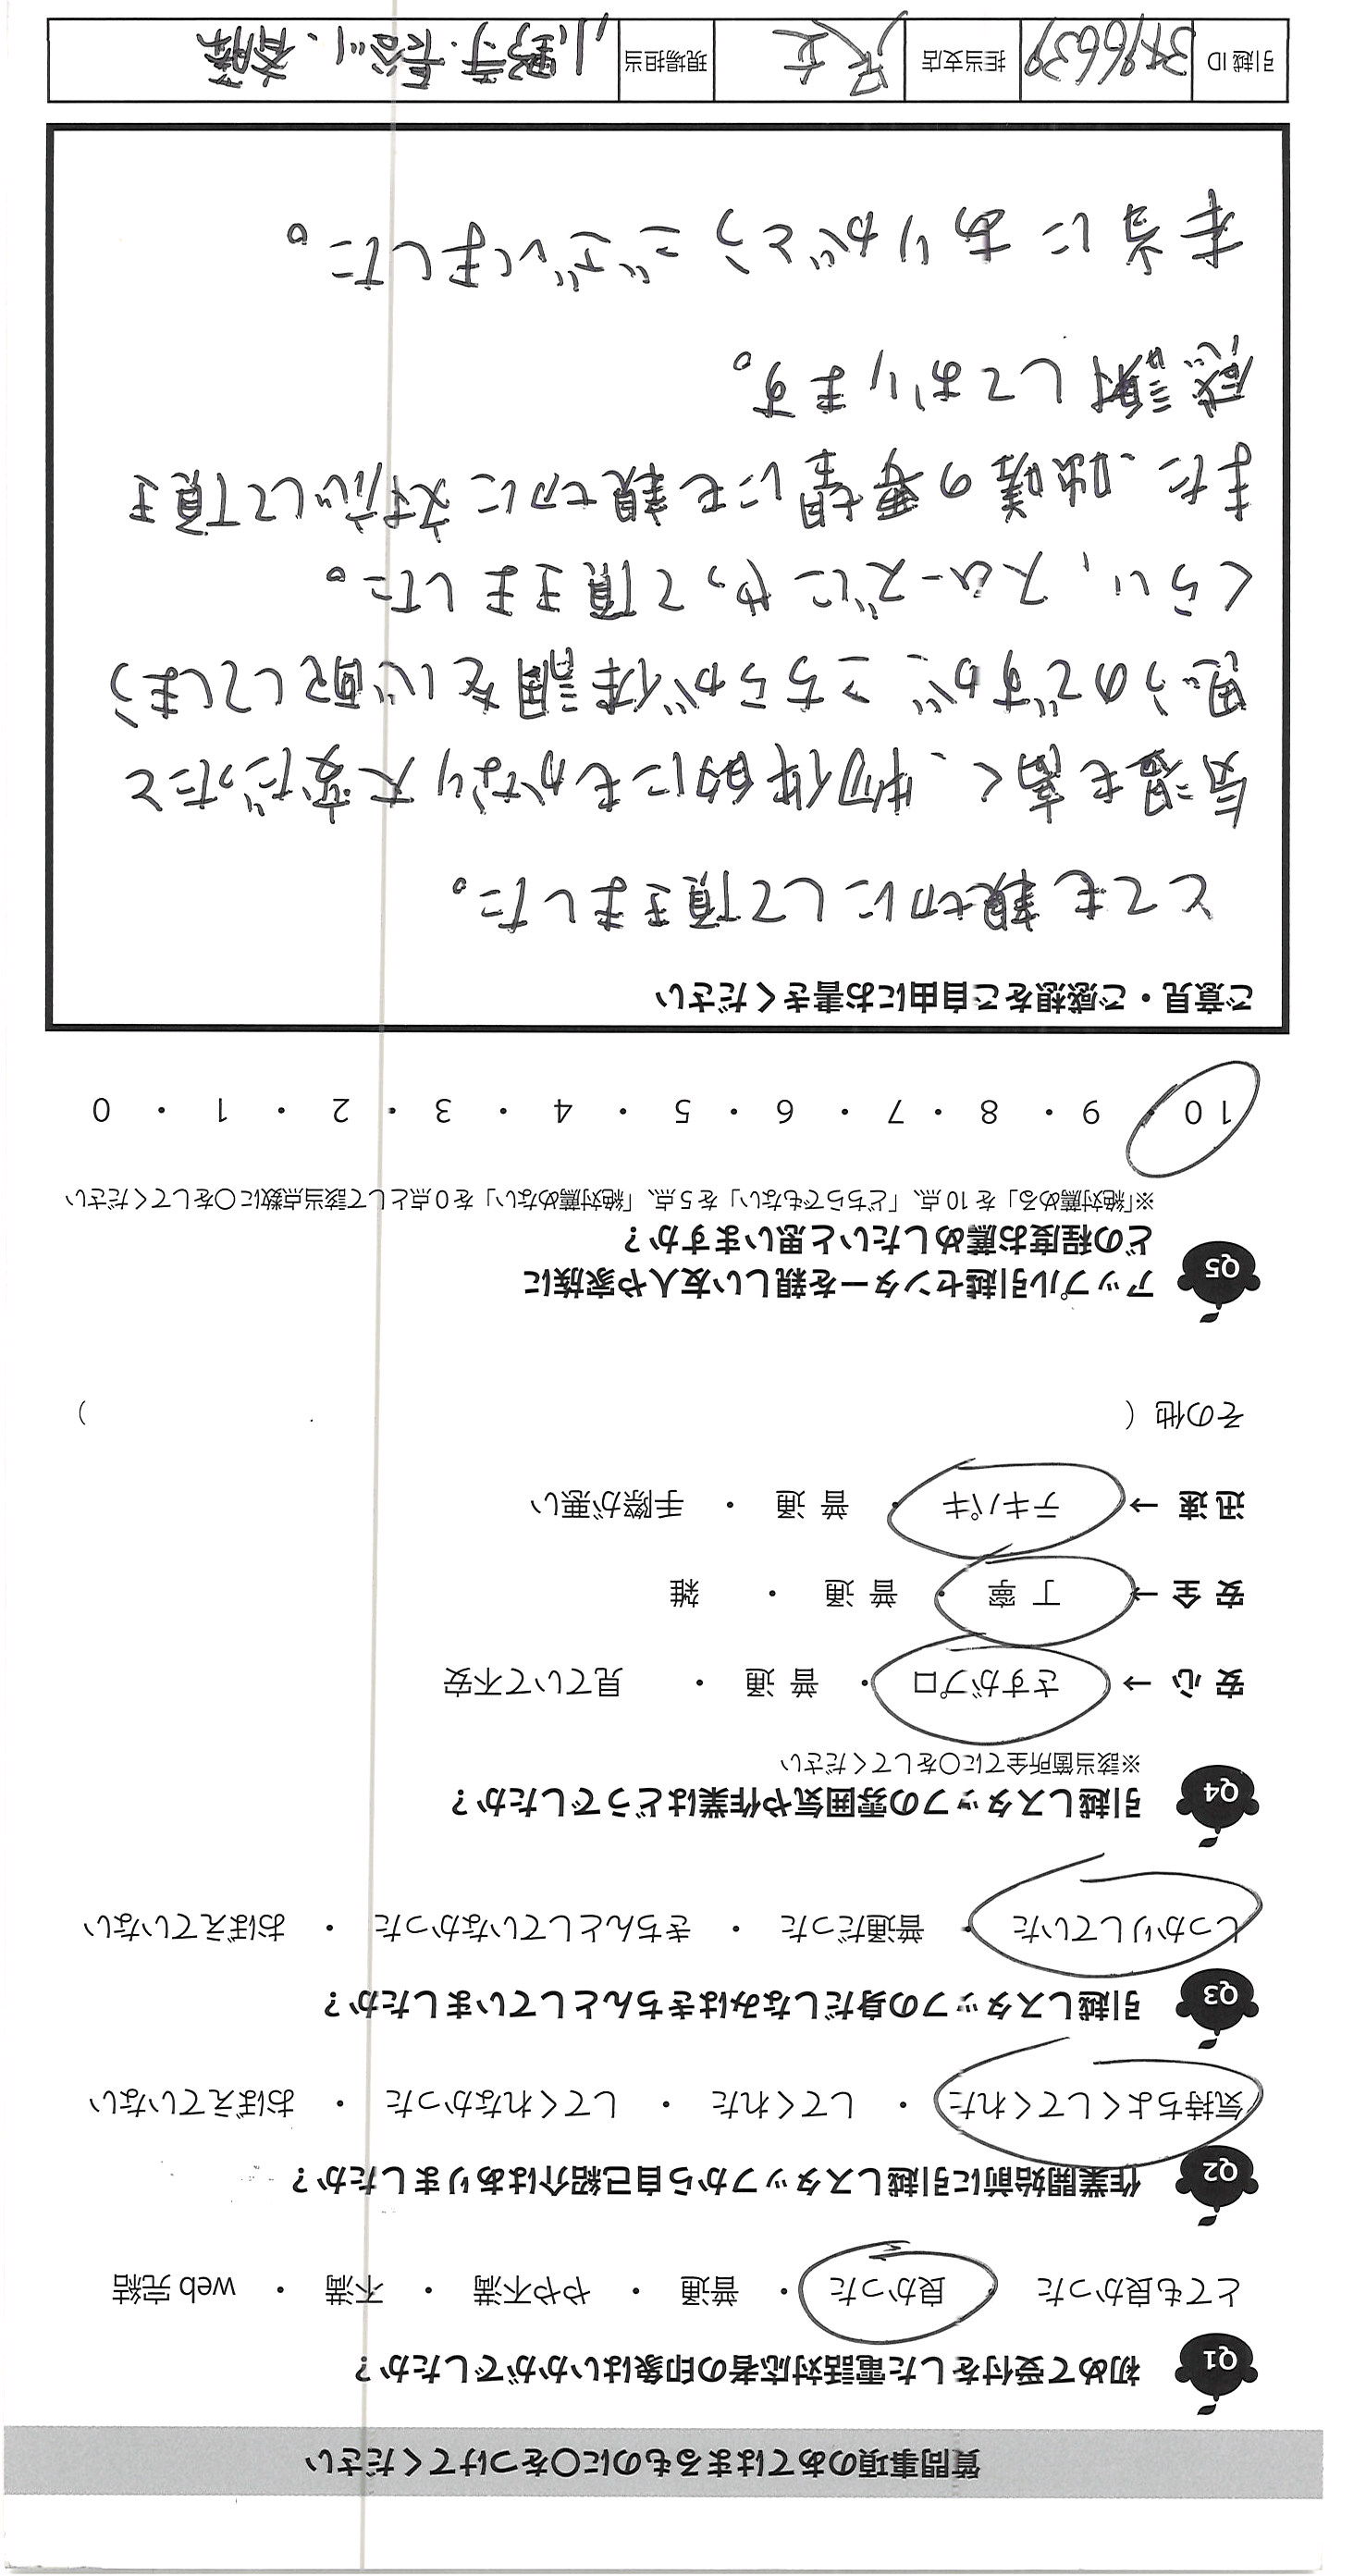 質問事項のあてはまるものに〇をつけてください
Q1 初めて受付をした電話対応者の印象はいかがでしたか？
とても良かった ・ 良かった ・ 普通 ・ やや不満 ・ 不満 ・ web完結
Q2 作業開始前に引越しスタッフから自己紹介はありましたか？
気持ちよくしてくれた ・ してくれた ・ してくれなかった ・ おぼえていない
Q3 引越しスタッフの身だしなみはきちんとしていましたか？
しっかりしていた ・ 普通だった ・ きちんとしていなかった ・ おぼえていない
Q4 引越しスタッフの雰囲気や作業はどうでしたか？
※該当箇所全てに〇をしてください
安心 → さすがプロ ・ 普通 ・ 見ていて不安
安全 → 丁寧 ・ 普通 ・ 雑
迅速 → テキパキ ・ 普通 ・ 手際が悪い
その他（ ）
Q5 アップル引越センターを親しい友人や家族に
どの程度お薦めしたいと思いますか？
※「絶対薦める」を10点、「どちらでもない」を5点、「絶対薦めない」を0点として該当点数に〇をしてください
10 ・ 9 ・ 8 ・ 7 ・ 6 ・ 5 ・ 4 ・ 3 ・ 2 ・ 1 ・ 0
ご意見・ご感想をご自由にお書きください
とても親切にして頂きました。
気温も高く、物体的にもかなり大変だったと
思うのですが、こちらが体調を心配してしまう
くらい、スムーズにやって頂きました。
また、咄嗟の要望にも親切に対応して頂き
感謝しております。
本当にありがとうございました。
引越ID 3496639 担当支店 足立 現場担当 小野寺、長谷川、斎藤